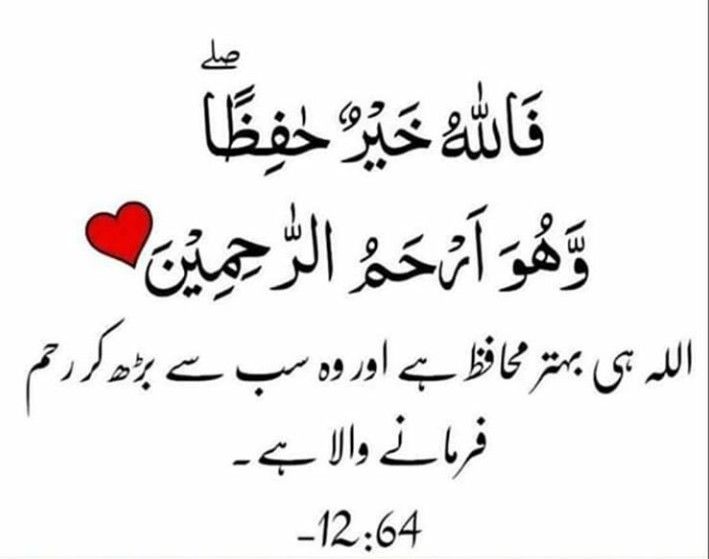 فَاللّٰهُ خَيْرٌ حٰفِظًا ۖ
وَّهُوَ اَرْحَمُ الرّٰحِمِيْنَ
اللہ ہی بہتر محافظ ہے اور وہ سب سے بڑھ کر رحم
فرمانے والا ہے۔
-12:64